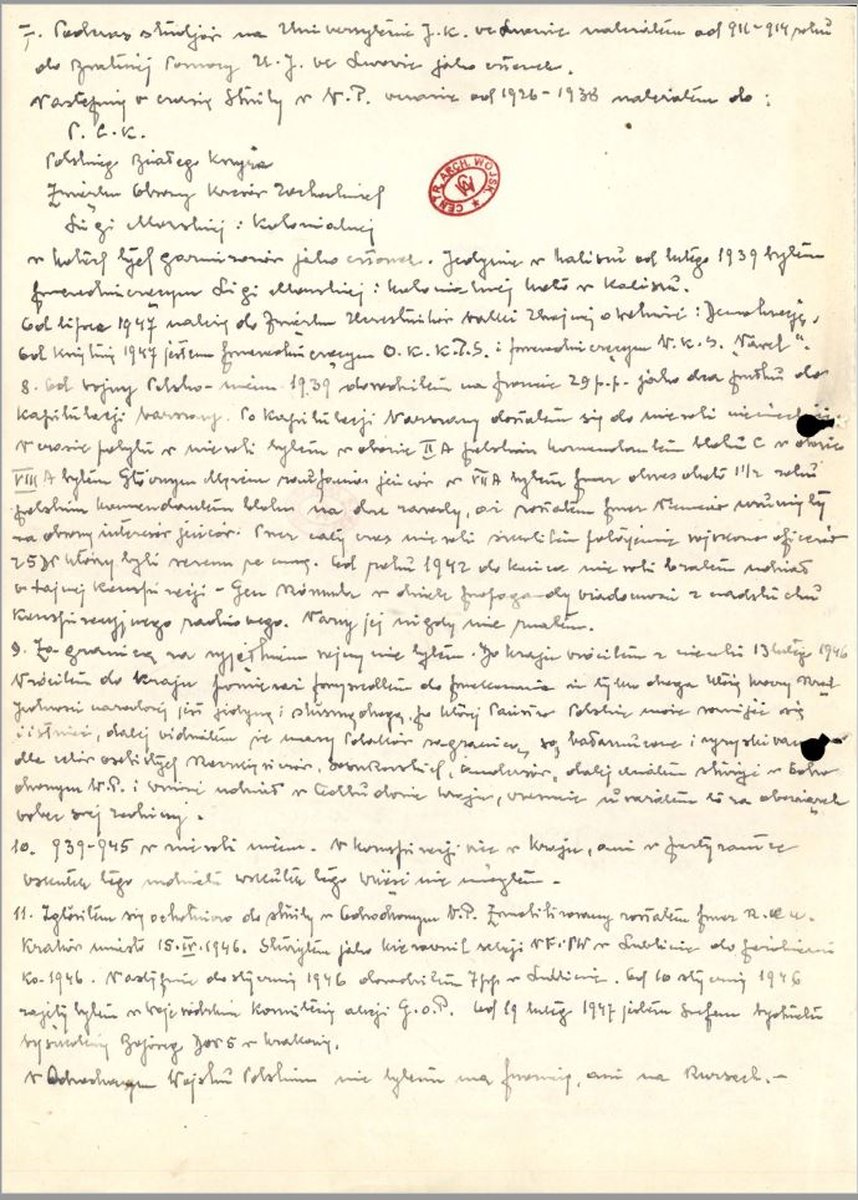 7. Podczas studjów na Uniwersytecie J.K. we Lwowie należałem od 911-914 roku
do Bratniej Pomocy U.J. we Lwowie jako członek.
Następnie w czasie służby w W.P. w czasie od 1926-1938 należałem do:
P.C.K.
Polskiego Białego Krzyża
Związku Obrony Kresów Zachodnich
Ligi Morskiej i Kolonialnej
CENTR. ARCH. WOJSK.
w których garnizonów jako członek. Jedynie w Kaliszu od lutego 1939 byłem
przewodniczącym Ligi Morskiej i Kolonialnej koło w Kaliszu.
Od lipca 1947 należę do Związku Uczestników Walki Zbrojnej o Wolność i Demokrację.
Od 1947 jestem przewodniczącym O.K.K.P.S. i przewodniczącym W.K.S. "Wawel".
8. Od wojny Polsko-niem 1939 dowodziłem na froncie 29 p.p. jako dca pułku do
Kapitulacji Warszawy. Po Kapitulacji Warszawy dostałem się do niewoli
W czasie pobytu w niewoli byłem w obozie II A polskim komendantem bloku C w obozie
VIII A byłem Głównym Mężem zaufania jeńców w VII A byłem przez okres około 1 1/2 roku
polskim komendantem bloku na dwa zawody, aż zostałem przez Niemców usunięty
za obronę interesów jeńców. Przez cały czas niewoli
25 którzy byli razem ze mną. Od roku 1942 do końca niewoli brałem udział
w tajnej Konspiracji - Gen w dziale propagandy wiadomości z nadsłuchu
Konspiracyjnego radiowego. Nazwy jej nigdy nie znałem.
9. Za granicą za wyjątkiem wojny nie byłem. Do kraju wróciłem z niewoli 13 lutego 1946
Wróciłem do kraju ponieważ przyszedłem do przekonania że tylko droga którą kroczy Rząd
Jedności narodowej jest jedyną i słuszną drogą, po której Państwo Polskie może rozwijać się
i istnieć, dalej widziałem że masy Polaków zagranicą, są bałamucone i wyzyskiwane
dla celów osobistych, dalej chciałem służyć w Odro-
dzonym W.P. i wnieść udział w Odbudowie kraju, uważałem to za obowiązek
wobec swej rodziny.
10. 939-945 w niewoli niem. W konspiracji nie w kraju, ani w partyzantce
wskutek tego udziału wskutek tego wziąść nie mogłem -
11. Zgłosiłem się ochotniczo do służby w Odrodzonym W.P. Zmobilizowany zostałem przez R.K.U.
Kraków miasto 15.IV.1946. Służyłem jako kierownik sekcji WF i PW w Lublinie do
1946. Następnie do stycznia 1946 dowodziłem 7pp w Lublinie. Od 10 stycznia 1946
zajęty byłem w Wojewódzkim Komitecie akcji G.O.P. Od 19 lutego 1947 jestem Szefem Wydziału
Wyszkolenia Bojowego DOW 5 w Krakowie.
W Odrodzonym Wojsku Polskim nie byłem na froncie, ani na Kursach. -